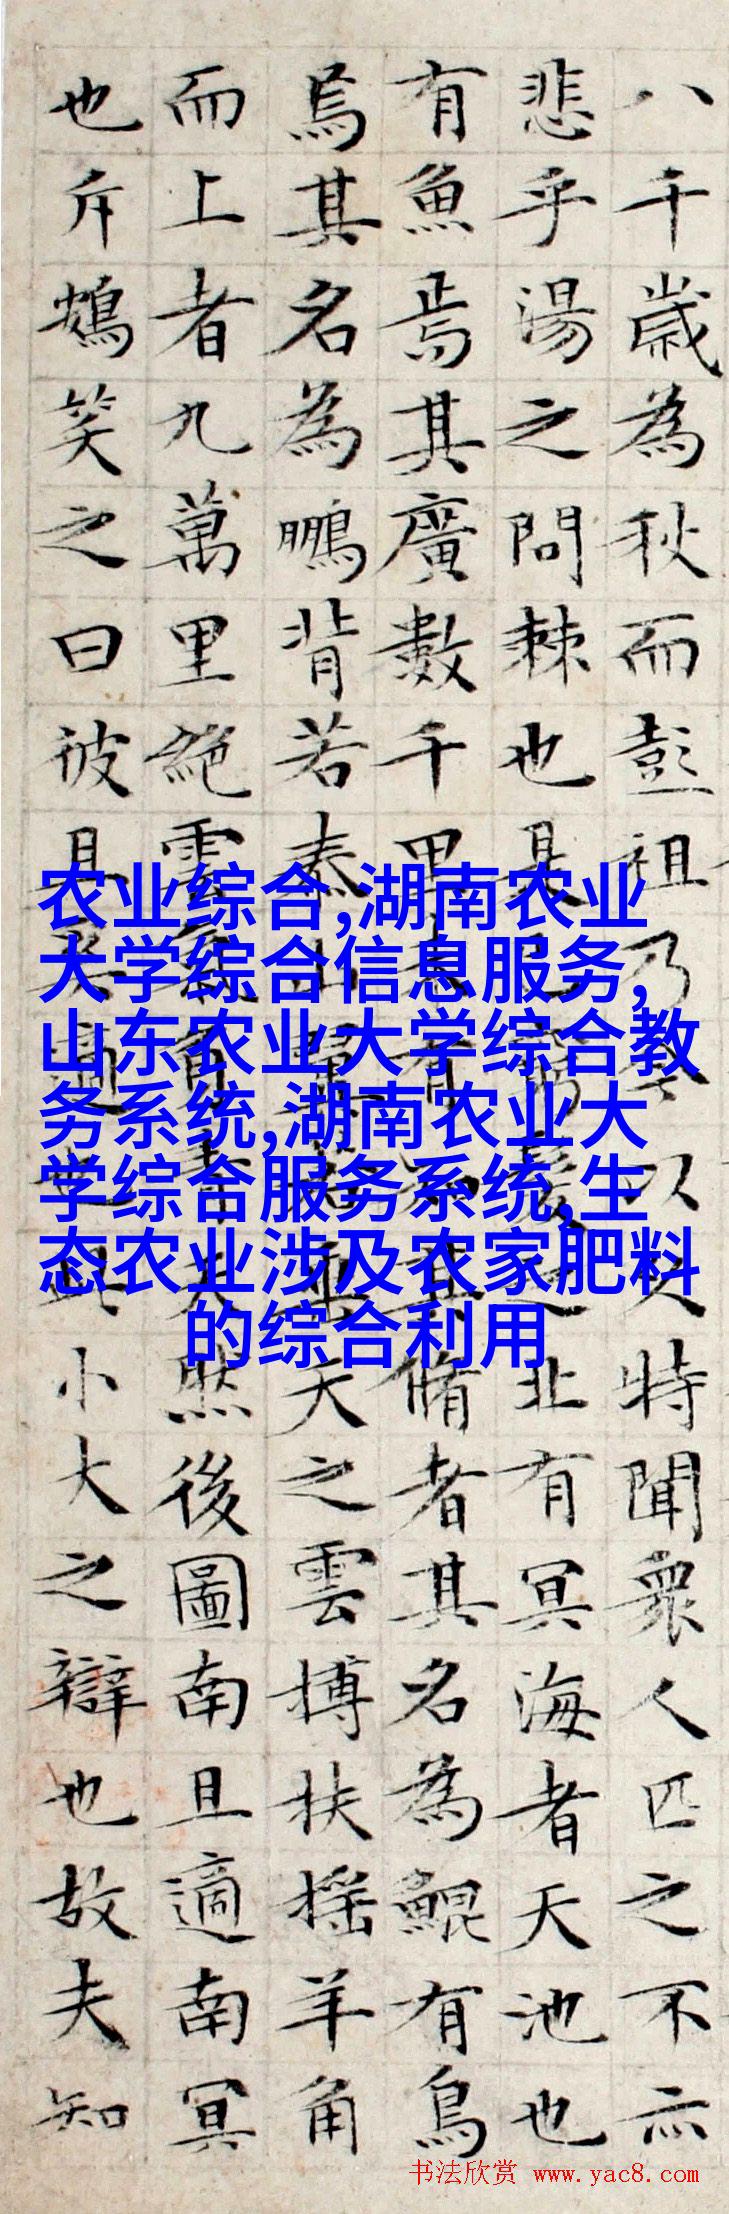 八千歲為秋而彭祖乃今以久特聞衆人匹之不亦
悲乎湯之問棘也是已窮髮之北有冥海者天池也
有魚焉其廣數千里未有知其脩者其名為鯤有鳥
焉其名為鵬背若泰山翼若垂天之雲搏扶搖羊角
而上者九萬里絕雲氣負青天然後圖南且適南冥
也斥鴳笑之曰彼且奚適也此小大之辯也故夫知
农业综合,湖南农业
大学综合信息服务,
山东农业大学综合教
务系统,湖南农业大
学综合服务系统,生
态农业涉及农家肥料
的综合利用
书法欣赏 www.yac8.com